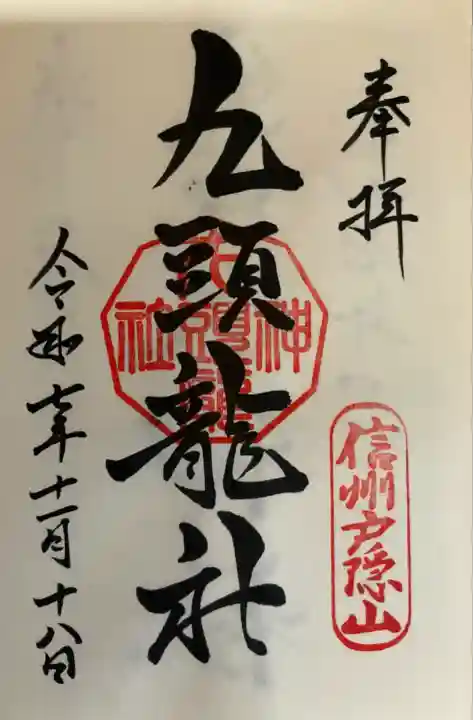 奉拝
信州戸隠山
九頭龍社
九頭龍
神
社
令和七年十一月十八日